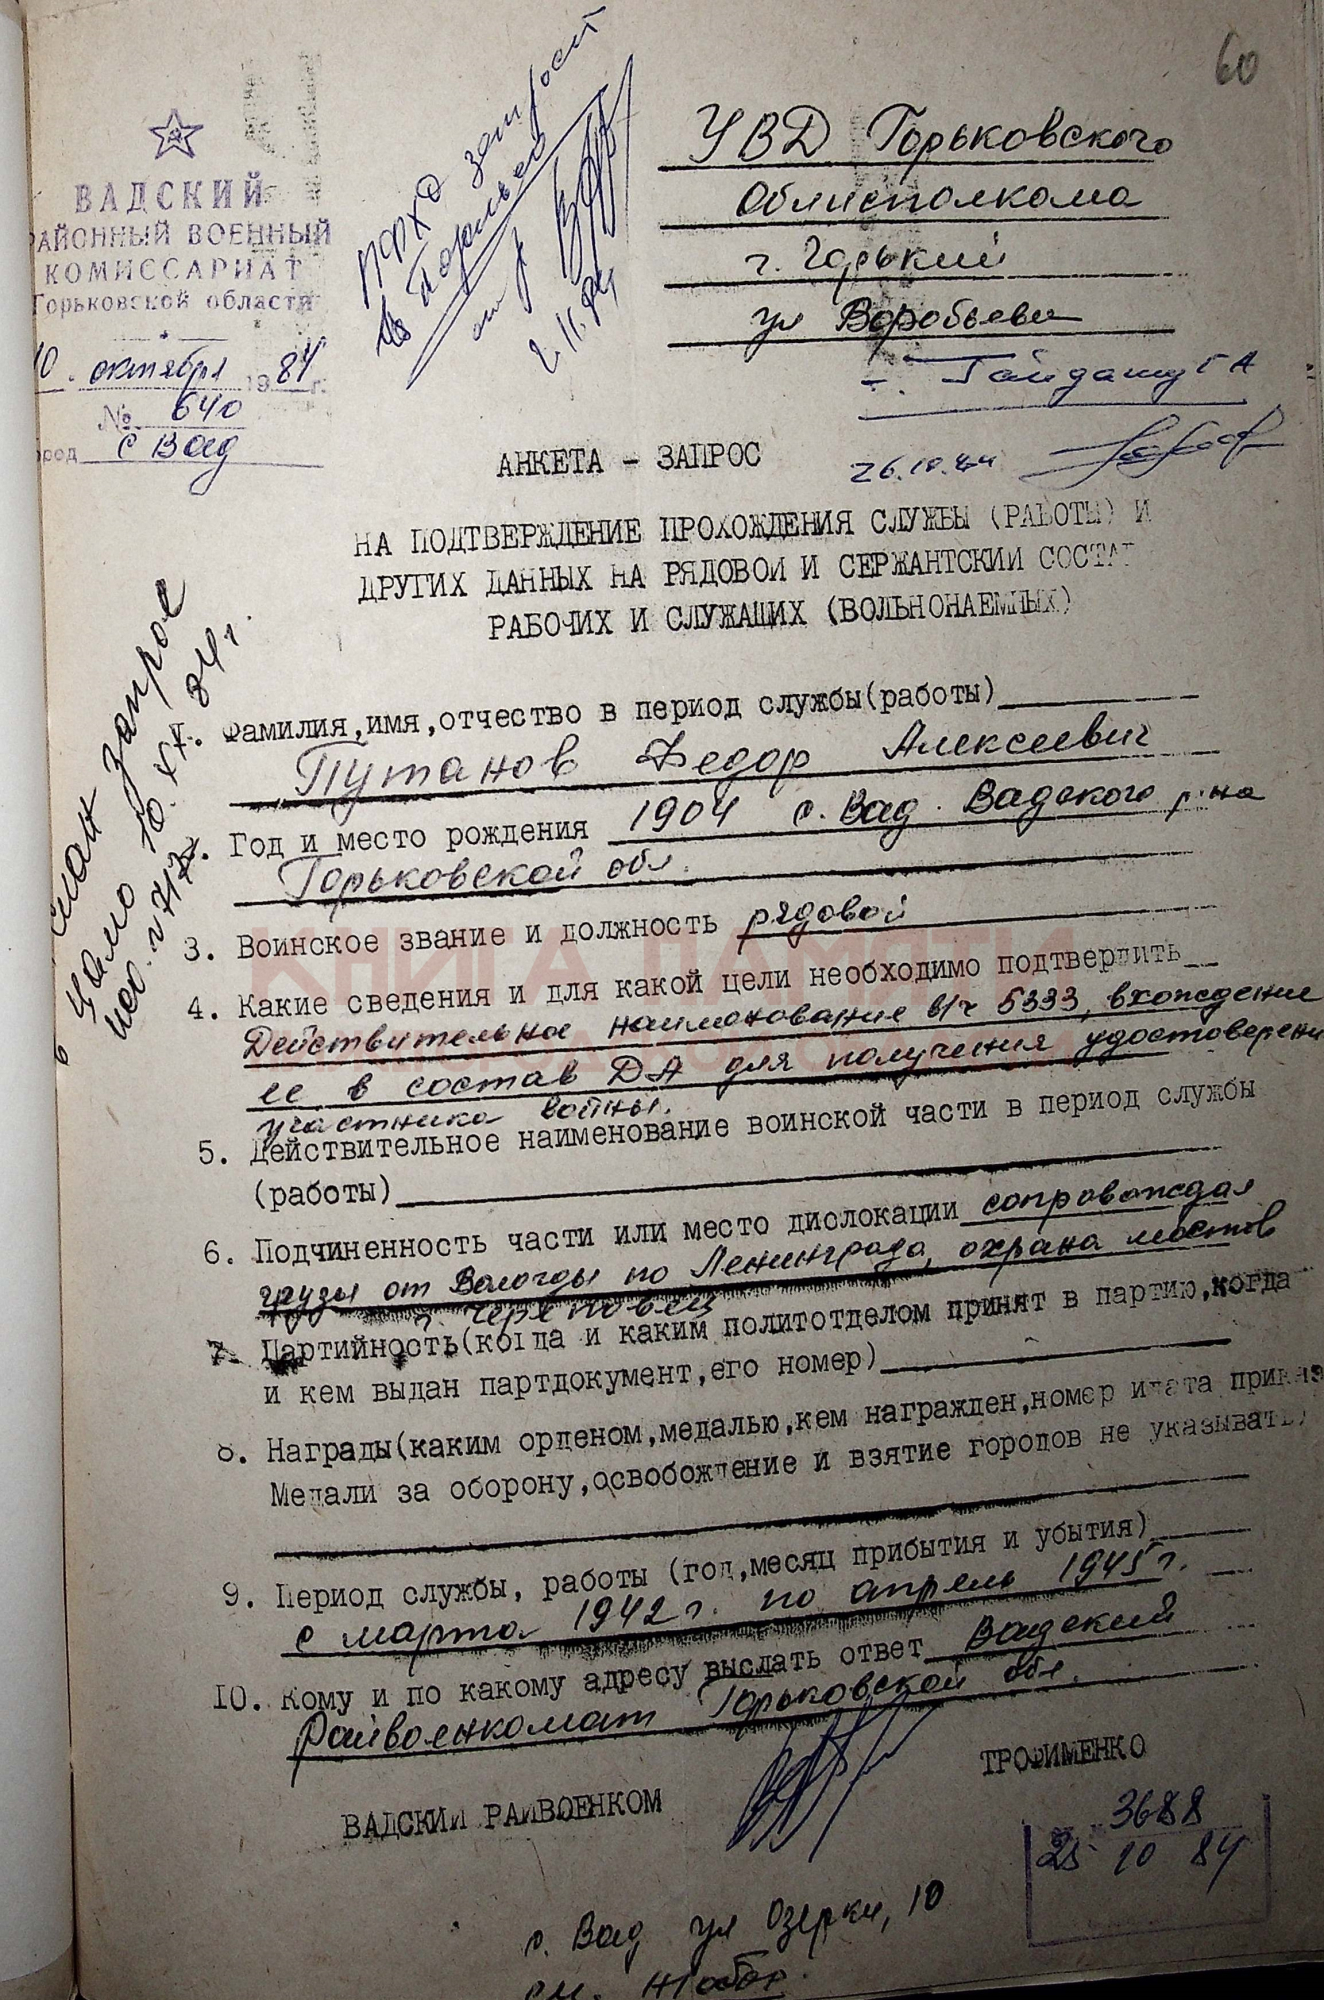 60
ВАДСКИЙ
РАЙОННЫЙ ВОЕННЫЙ
КОМИССАРИАТ
Горьковской области
10. октября 1984 г.
№ 640
город с Вад
запрос
2.11.84
УВД Горьковского
Облисполкома
г. Горький
ул Воробьева
т. Гайдашу Г А
26.10.84
АНКЕТА – ЗАПРОС
НА ПОДТВЕРЖДЕНИЕ ПРОХОЖДЕНИЯ СЛУЖБЫ (РАБОТЫ) И
ДРУГИХ ДАННЫХ НА РЯДОВОЙ И СЕРЖАНТСКИЙ СОСТАВ
РАБОЧИХ И СЛУЖАЩИХ (ВОЛЬНОНАЕМНЫХ)
запрос
84г.
Фамилия,имя,отчество в период службы(работы)
Путанов Федор Алексеевич
2. Год и место рождения 1904 с. Вад. Вадского р-на
Горьковской обл.
3. Воинское звание и должность рядовой
КНИГА ПАМЯТИ
4. Какие сведения и для какой цели необходимо подтвердить
Действительное наименование в/ч 5333, вхождение
ее в состав ДА для получения удостоверени
участника войны.
5. Действительное наименование воинской части в период службы
(работы)
6. Подчиненность части или место дислокации сопровождал
грузы от Вологды по Ленинграда, охрана мостов
г. Череповец
7. Партийность(когда и каким политотделом принят в партию,когда
и кем выдан партдокумент,его номер)
8. Награды(каким орденом,медалью,кем награжден,номер и дата приказа
Медали за оборону,освобождение и взятие городов не указывать)
9. Период службы, работы (год,месяц прибытия и убытия)
с марта 1942 г. по апрель 1945 г.
10. Кому и по какому адресу выслать ответ Вадский
Райвоенкомат Горьковской обл.
ВАДСКИЙ РАЙВОЕНКОМ
ТРОФИМЕНКО
3688
25 10 84
с. Вад ул Озерки, 10